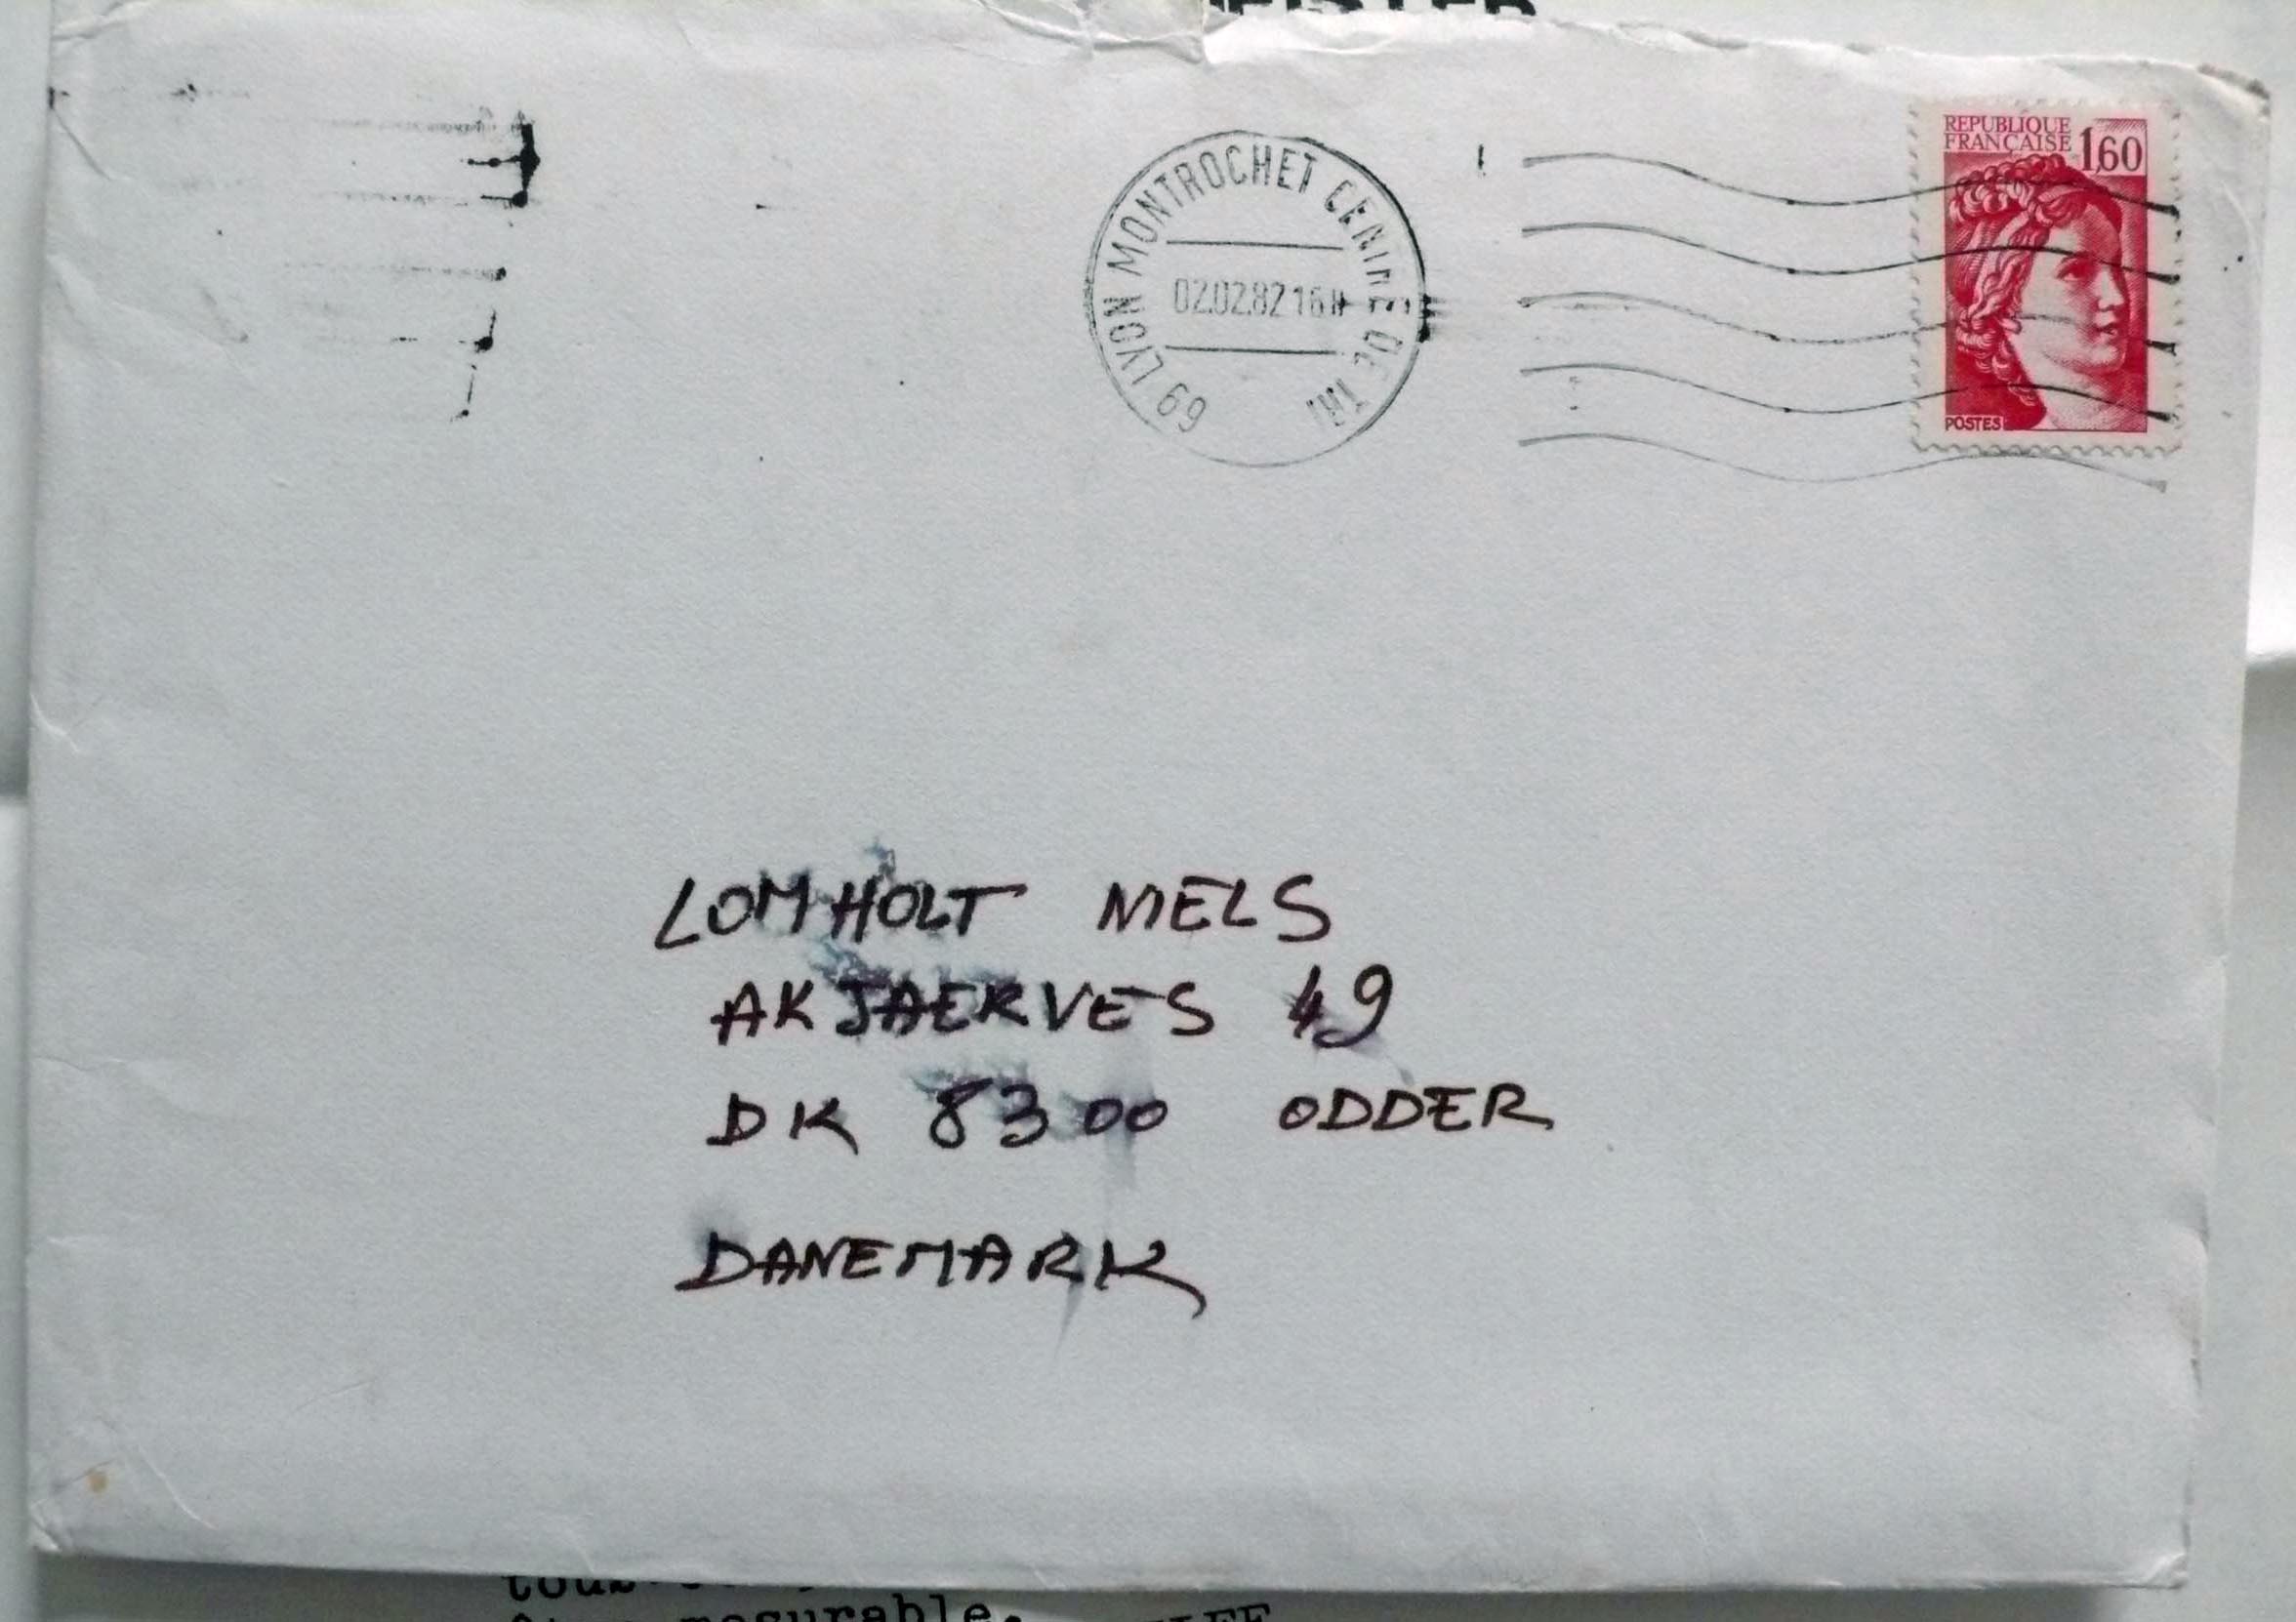 REPUBLIQUE
FRANÇAISE 1,60
POSTES
69 LYON MONTROCHET CENTRE DE TRI
02.02.82 16H
LOMHOLT NIELS
AKJAERVES 49
DK 8300 ODDER
DANEMARK
mesurable.